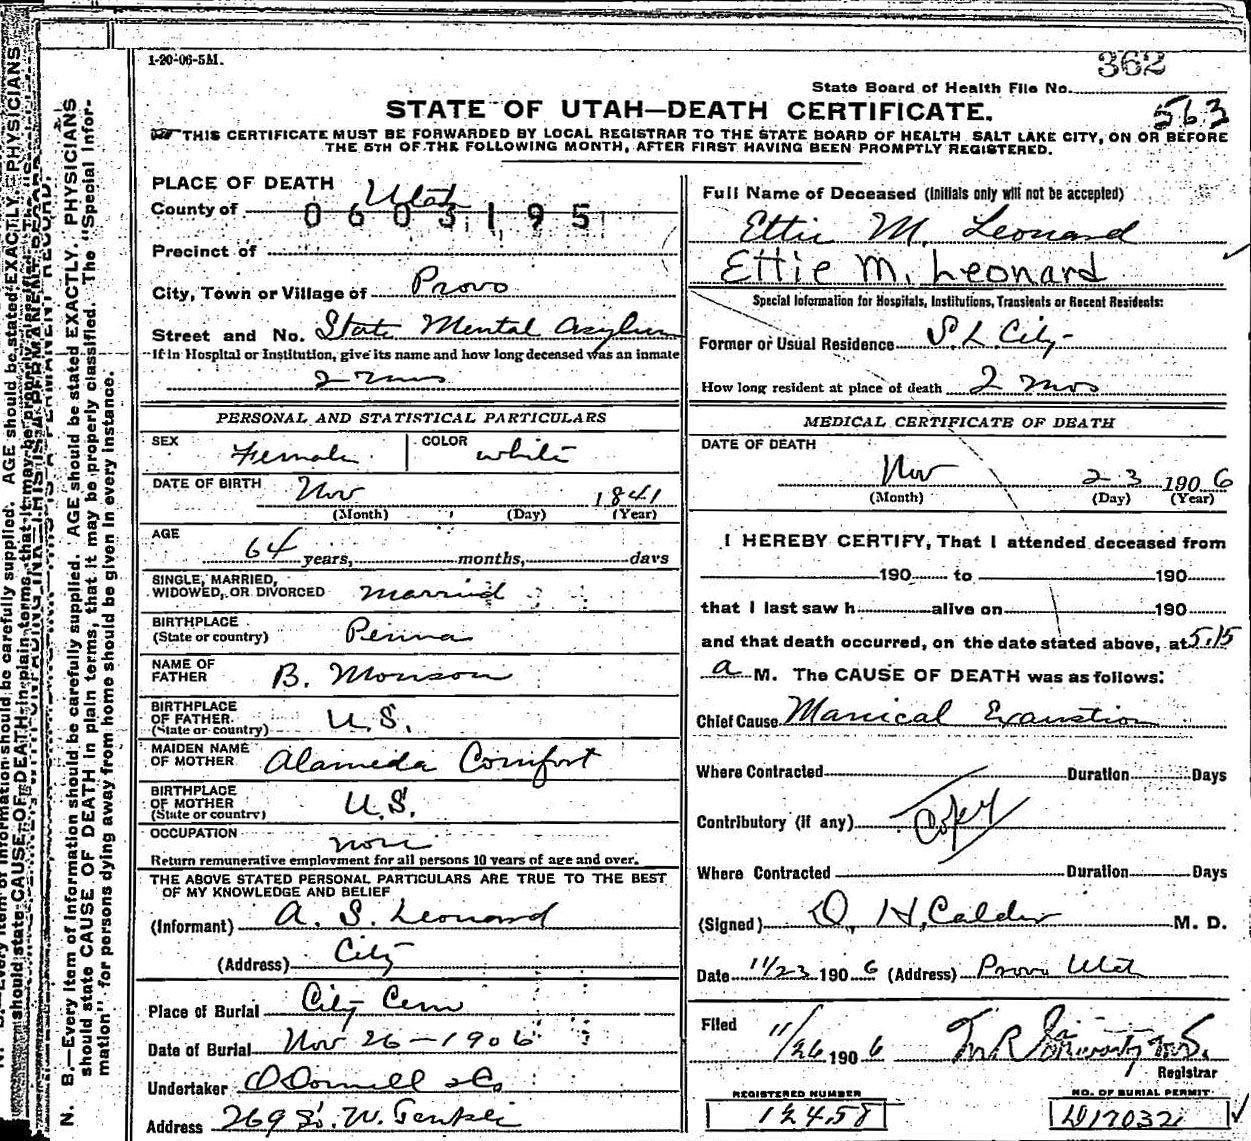 1-20-06-5M.
362
State Board of Health File No.
563
STATE OF UTAH—DEATH CERTIFICATE.
THIS CERTIFICATE MUST BE FORWARDED BY LOCAL REGISTRAR TO THE STATE BOARD OF HEALTH, SALT LAKE CITY, ON OR BEFORE
THE 5TH OF THE FOLLOWING MONTH, AFTER FIRST HAVING BEEN PROMPTLY REGISTERED.
PLACE OF DEATH
County of Utah
0603195
Precinct of
City, Town or Village of Provo
Street and No. State Mental Asylum
If in Hospital or Institution, give its name and how long deceased was an inmate
2 mos
PERSONAL AND STATISTICAL PARTICULARS
SEX Female COLOR white
DATE OF BIRTH Nov 1841
(Month) (Day) (Year)
AGE
64 years, months, days
SINGLE, MARRIED,
WIDOWED, OR DIVORCED Married
BIRTHPLACE
(State or country) Penna
NAME OF
FATHER B. Monson
BIRTHPLACE
OF FATHER
(State or country) U.S.
MAIDEN NAME
OF MOTHER Alameda Comfort
BIRTHPLACE
OF MOTHER
(State or country) U.S.
OCCUPATION
Return remunerative employment for all persons 10 years of age and over.
THE ABOVE STATED PERSONAL PARTICULARS ARE TRUE TO THE BEST
OF MY KNOWLEDGE AND BELIEF
(Informant) A. S. Leonard
(Address) City
Place of Burial City Cem
Date of Burial Nov 26-1906
Undertaker O'Donnell & Co
Address 269 So. W. Temple
Full Name of Deceased (Initials only will not be accepted)
Ettie M. Leonard
Ettie M. Leonard
Special Information for Hospitals, Institutions, Transients or Recent Residents:
Former or Usual Residence S. L. City
How long resident at place of death 2 mos
MEDICAL CERTIFICATE OF DEATH
DATE OF DEATH
Nov 23 1906
(Month) (Day) (Year)
I HEREBY CERTIFY, That I attended deceased from
190 to 190
that I last saw h alive on 190
and that death occurred, on the date stated above, at 5.15
a M. The CAUSE OF DEATH was as follows:
Chief Cause Manical Exaustion
Where Contracted Duration Days
Contributory (if any) Copy
Where Contracted Duration Days
(Signed) D. H. Calder M. D.
Date 11/23 1906 (Address) Provo Utah
Filed 11/26 1906
Registrar
REGISTERED NUMBER
12458
NO. OF BURIAL PERMIT
D17032
N. B.—Every item of information should be carefully supplied. AGE should be stated EXACTLY. PHYSICIANS
should state CAUSE OF DEATH in plain terms, that it may be properly classified. The "Special Infor-
mation" for persons dying away from home should be given in every instance.